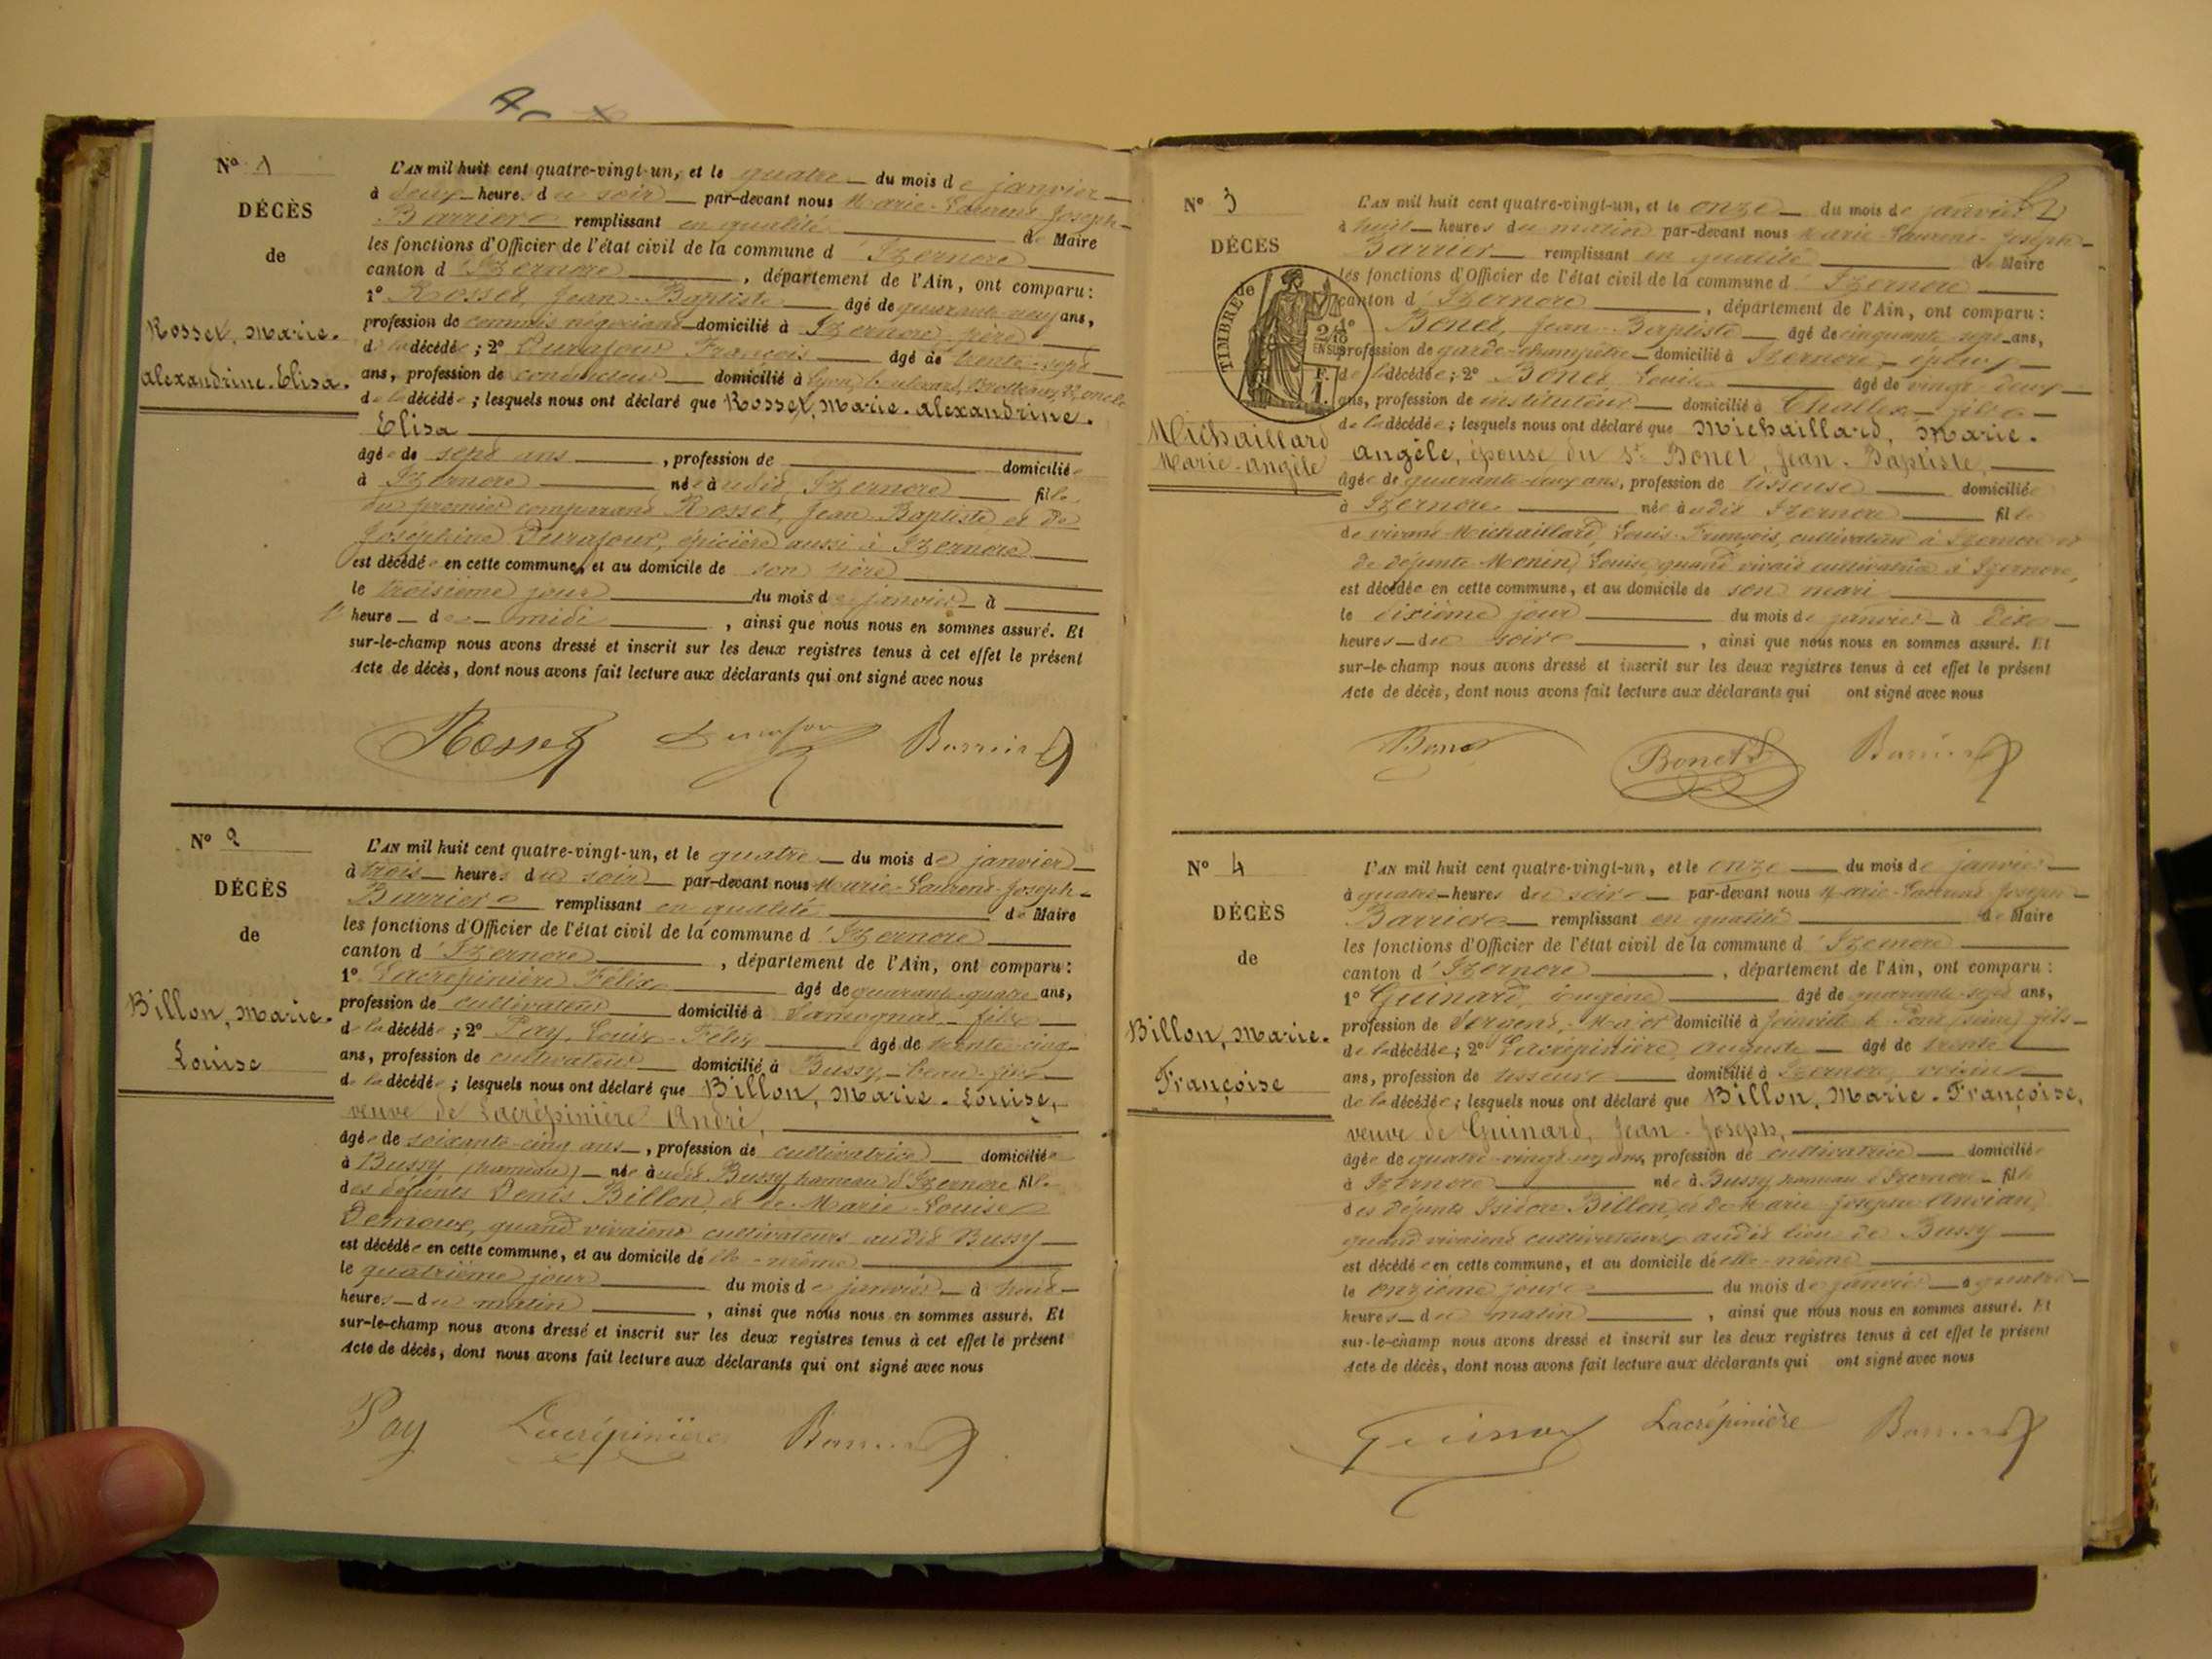 Nº 1
DÉCÈS
de
Rosset, Marie-
Alexandrine-Elisa.
L'AN mil huit cent quatre-vingt-un, et le quatre du mois de janvier
à deux heures du soir par-devant nous Marie-Laurent-Joseph-
Barrier remplissant en qualité de Maire
les fonctions d'Officier de l'état civil de la commune d'Izernore
canton d'Izernore, département de l'Ain, ont comparu :
1º Rosset, Jean-Baptiste âgé de quarante-neuf ans,
profession de commis négociant domicilié à Izernore, père
de la décédée ; 2º Durafour François âgé de trente-sept
ans, profession de conducteur domicilié à Lyon, boulevard Brotteaux, oncle
de la décédée ; lesquels nous ont déclaré que Rosset, Marie-Alexandrine-
Elisa
âgée de sept ans, profession de domiciliée
à Izernore née audit Izernore fille
du premier comparant Rosset, Jean-Baptiste et de
Joséphine Durafour, épicière aussi à Izernore
est décédée en cette commune, et au domicile de son père
le troisième jour du mois de janvier à
heure de midi, ainsi que nous nous en sommes assuré. Et
sur-le-champ nous avons dressé et inscrit sur les deux registres tenus à cet effet le présent
Acte de décès, dont nous avons fait lecture aux déclarants qui ont signé avec nous
Rosset Durafour Barrier
Nº 2
DÉCÈS
de
Billon, Marie-
Louise
L'AN mil huit cent quatre-vingt-un, et le quatre du mois de janvier
à trois heures du soir par-devant nous Marie-Laurent-Joseph-
Barrier remplissant en qualité de Maire
les fonctions d'Officier de l'état civil de la commune d'Izernore
canton d'Izernore, département de l'Ain, ont comparu :
1º Lacrépinière Félix âgé de quarante-quatre ans,
profession de cultivateur domicilié à Samognat fils
de la décédée ; 2º Pay, Louis-Félix âgé de trente-cinq
ans, profession de cultivateur domicilié à Bussy, beau-fils
de la décédée ; lesquels nous ont déclaré que Billon, Marie-Louise,
veuve de Lacrépinière André,
âgée de soixante-cinq ans, profession de cultivatrice domiciliée
à Bussy (hameau) née audit Bussy hameau d'Izernore fille
des défunts Denis Billon, et de Marie-Louise
Demoux, quand vivaient cultivateurs audit Bussy
est décédée en cette commune, et au domicile d'elle-même
le quatrième jour du mois de janvier à huit
heures du matin, ainsi que nous nous en sommes assuré. Et
sur-le-champ nous avons dressé et inscrit sur les deux registres tenus à cet effet le présent
Acte de décès, dont nous avons fait lecture aux déclarants qui ont signé avec nous
Pay Lacrépinière Barrier
Nº 3
DÉCÈS
de
TIMBRE
Michaillard
Marie-Angèle
L'AN mil huit cent quatre-vingt-un, et le onze du mois de janvier
à huit heures du matin par-devant nous Marie-Laurent-Joseph-
Barrier remplissant en qualité de Maire
les fonctions d'Officier de l'état civil de la commune d'Izernore
canton d'Izernore, département de l'Ain, ont comparu :
1º Bonet, Jean-Baptiste âgé de cinquante-sept ans,
profession de garde-champêtre domicilié à Izernore, époux
de la décédée ; 2º Bonet, Louis âgé de vingt-deux
ans, profession de instituteur domicilié à Challex fils
de la décédée ; lesquels nous ont déclaré que Michaillard, Marie-
Angèle, épouse du Sr Bonet, Jean-Baptiste,
âgée de quarante-deux ans, profession de tisseuse domiciliée
à Izernore née audit Izernore fille
de vivant Michaillard, Louis-François, cultivateur à Izernore et
de défunte Monin, Louise, quand vivait cultivatrice à Izernore,
est décédée en cette commune, et au domicile de son mari
le dixième jour du mois de janvier à dix
heures du soir, ainsi que nous nous en sommes assuré. Et
sur-le-champ nous avons dressé et inscrit sur les deux registres tenus à cet effet le présent
Acte de décès, dont nous avons fait lecture aux déclarants qui ont signé avec nous
Bonet Bonet L Barrier
Nº 4
DÉCÈS
de
Billon, Marie-
Françoise
L'AN mil huit cent quatre-vingt-un, et le onze du mois de janvier
à quatre heures du soir par-devant nous Marie-Laurent-Joseph-
Barrier remplissant en qualité de Maire
les fonctions d'Officier de l'état civil de la commune d'Izernore
canton d'Izernore, département de l'Ain, ont comparu :
1º Guinard, Eugène âgé de quarante-sept ans,
profession de Sergent-Major domicilié à Joinville le Pont (Seine) fils
de la décédée ; 2º Lacrépinière, Auguste âgé de trente
ans, profession de tisseur domicilié à Izernore, voisin
de la décédée ; lesquels nous ont déclaré que Billon, Marie-Françoise,
veuve de Guinard, Jean-Joseph,
âgée de quatre-vingt-un ans, profession de cultivatrice domiciliée
à Izernore née à Bussy hameau d'Izernore fille
des défunts Isidore Billon, et de Marie-Josephe Anvian,
quand vivaient cultivateurs audit lieu de Bussy
est décédée en cette commune, et au domicile d'elle-même
le onzième jour du mois de janvier à quatre
heures du matin, ainsi que nous nous en sommes assuré. Et
sur-le-champ nous avons dressé et inscrit sur les deux registres tenus à cet effet le présent
Acte de décès, dont nous avons fait lecture aux déclarants qui ont signé avec nous
Guinard Lacrépinière Barrier